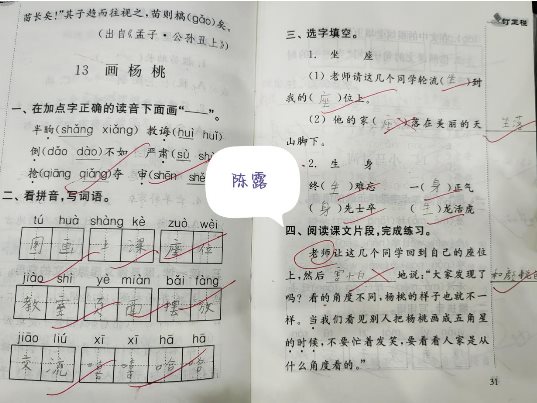 苗长矣！”其子趋而往视之，苗则槁(gǎo)矣。
（出自《孟子·公孙丑上》）
13 画杨桃
一、在加点字正确的读音下面画“——”。
半晌(shǎng xiǎng) 教诲(huì huǐ)
倒(dǎo dào)不如 严肃(sù
抢(qiāng qiǎng)夺 审(shěn shě
二、看拼音，写词语。
tú huà shàng kè zuò wèi
图画 上课 座位
jiào shì yè miàn bǎi fàng
教室 页面 摆放
jiāo liú xī xī hā hā
交流 嘻嘻 哈哈
陈露
订正栏
三、选字填空。
1. 坐 座
(1) 老师请这几个同学轮流(坐)到
我的(座)位上。
(2) 他的家(座)落在美丽的天
山脚下。
坐落
2. 生 身
终(生)难忘 一(身)正气
(身)先士卒 (生)龙活虎
四、阅读课文片段，完成练习。
老师让这几个同学回到自己的座位
上，然后 地说：“大家发现了
和颜悦色
吗？看的角度不同，杨桃的样子也就不一
样。当我们看见别人把杨桃画成五角星
的时候，不要忙着发笑，要看看人家是从
什么角度看的。”
31